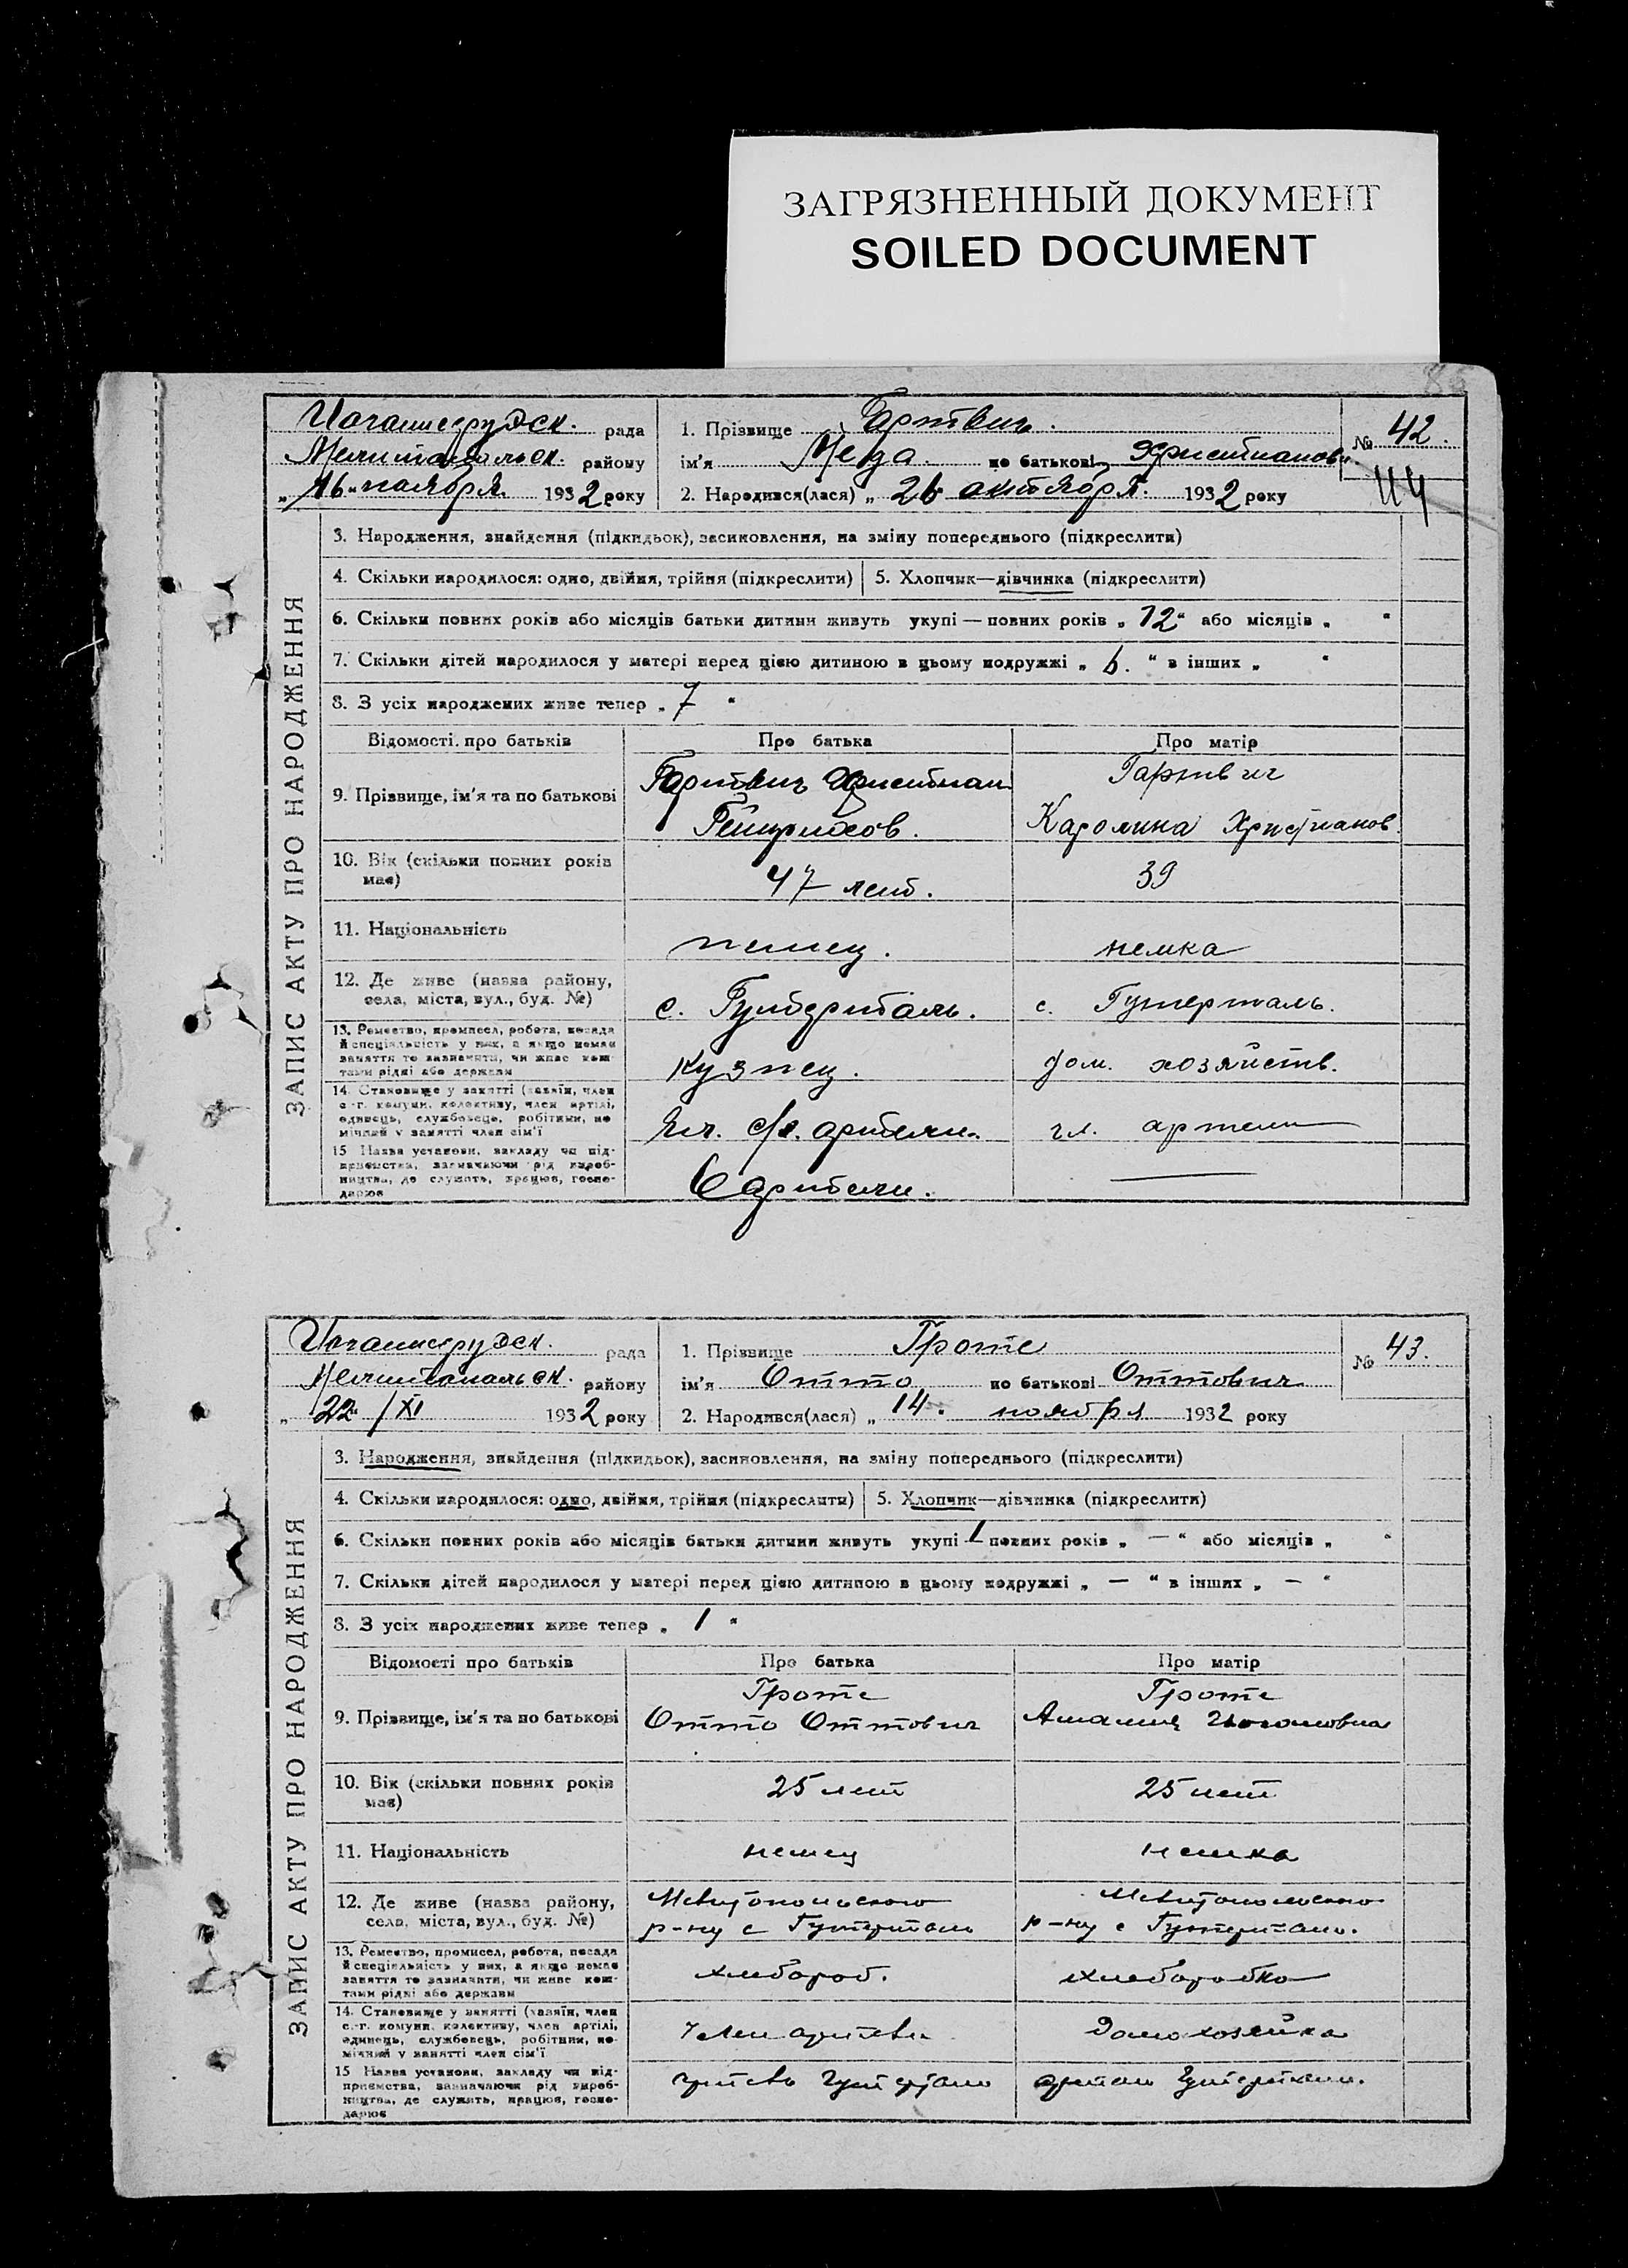 ЗАГРЯЗНЕННЫЙ ДОКУМЕНТ
SOILED DOCUMENT
рада
району
16 ноября 1932 року
1. Прізвище Гартвиг.
ім'я по батькові Христианов.
2. Народився(лася) „ 26 октября. 1932 року
№ 42.
44
ЗАПИС АКТУ ПРО НАРОДЖЕННЯ
3. Народження, знайдення (підкидьок), засиновлення, на зміну попереднього (підкреслити)
4. Скільки народилося: одно, двійня, трійня (підкреслити) 5. Хлопчик—дівчинка (підкреслити)
6. Скільки повних років або місяців батьки дитини живуть укупі — повних років „ 12 “ або місяців „ “
7. Скільки дітей народилося у матері перед цією дитиною в цьому подружжі „ 6. “ в інших „ “
8. З усіх народжених живе тепер „ 7 “
Відомості про батьків Про батька Про матір
9. Прізвище, ім'я та по батькові
Гартвиг Христиан
Гейнрихов.
Гартвиг
Каролина Христианов.
10. Вік (скільки повних років має)
47 лет.
39
11. Національність
немец.
немка
12. Де живе (назва району,
села, міста, вул., буд. №)
с. Гутерталь.
с. Гутерталь.
13. Ремество, промисел, робота, посада
й спеціяльність у них, а якщо немає
заняття то зазначити, чи живе кош-
тами рідні або держави
кузнец.
дом. хозяйств.
14. Становище у занятті (хазяїн, член
с.-г. комуни, колективу, член артілі,
одинець, службовець, робітник, по-
мічний у занятті член сім'ї
Чл. с/х. артели.
чл. артели
15 Назва установи, закладу чи під-
приємства, зазначаючи рід вироб-
ництва, де служить, працює, госпо-
дарює
В артели.
рада
району
22 /XI 1932 року
1. Прізвище Гроте
ім'я Отто по батькові Оттович
2. Народився(лася) „ 14. ноября 1932 року
№ 43.
ЗАПИС АКТУ ПРО НАРОДЖЕННЯ
3. Народження, знайдення (підкидьок), засиновлення, на зміну попереднього (підкреслити)
4. Скільки народилося: одно, двійня, трійня (підкреслити) 5. Хлопчик—дівчинка (підкреслити)
6. Скільки повних років або місяців батьки дитини живуть укупі 1 повних років „ — “ або місяців „ “
7. Скільки дітей народилося у матері перед цією дитиною в цьому подружжі „ — “ в інших „ — “
8. З усіх народжених живе тепер „ 1 “
Відомості про батьків Про батька Про матір
9. Прізвище, ім'я та по батькові
Гроте
Отто Оттович
Гроте
Амалия Иогановна
10. Вік (скільки повних років має)
25 лет
25 лет
11. Національність
немец
немка
12. Де живе (назва району,
села, міста, вул., буд. №)
р-ну с Гутерталь
р-ну с Гутерталь.
13. Ремество, промисел, робота, посада
й спеціяльність у них, а якщо немає
заняття то зазначити, чи живе кош-
тами рідні або держави
хлебороб.
хлеборобка
14. Становище у занятті (хазяїн, член
с.-г. комуни, колективу, член артілі,
одинець, службовець, робітник, по-
мічний у занятті член сім'ї
Член артели
Домохозяйка
15 Назва установи, закладу чи під-
приємства, зазначаючи рід вироб-
ництва, де служить, працює, госпо-
дарює